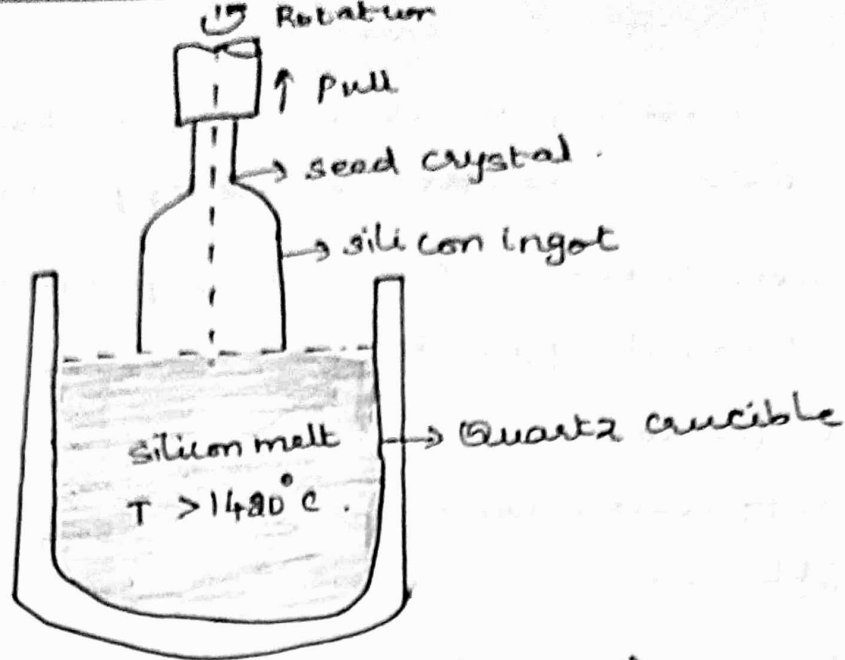 Rotation
↑ Pull
→ seed crystal.
→ silicon ingot
silicon melt
→ Quartz crucible
T > 1420°C.